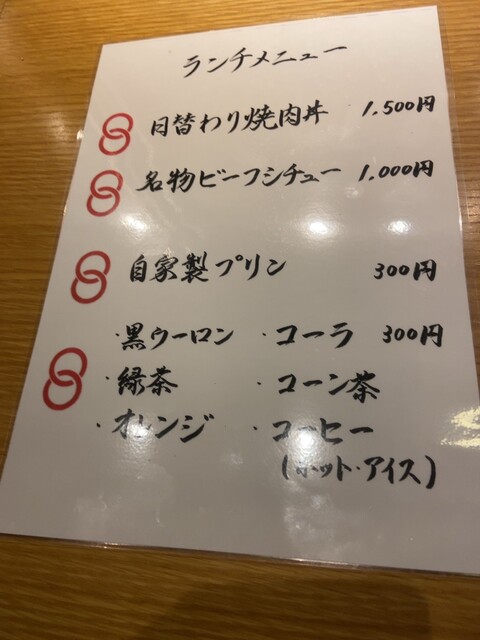 ランチメニュー
日替わり焼肉丼 1,500円
名物ビーフシチュー 1,000円
自家製プリン 300円
・黒ウーロン ・コーラ 300円
・緑茶 ・コーン茶
・オレンジ ・コーヒー
(ホット・アイス)